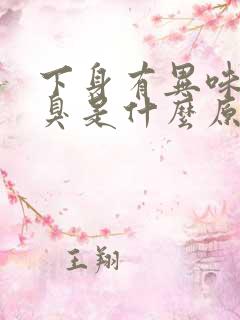 下身有異味
臭是什麼原
王翔